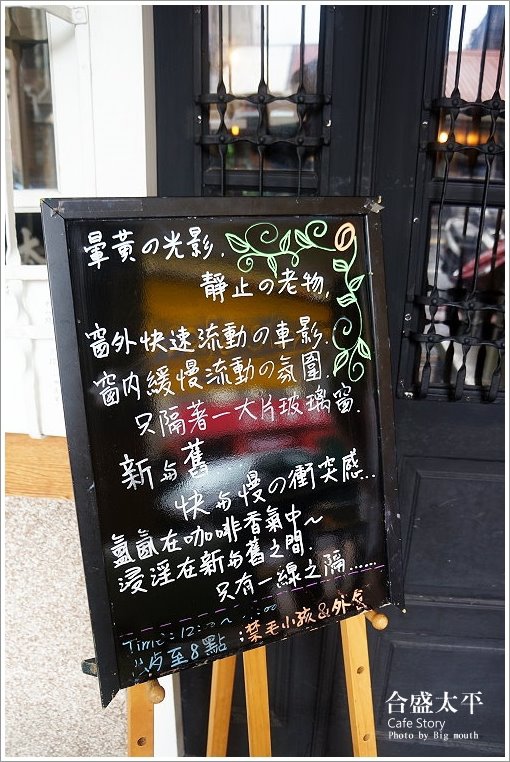 暈黃の光影.
靜止の老物,
窗外快速流動の車影.
窗內緩慢流動の氛圍.
只隔著一大片玻璃窗.
新与舊
快与慢の衝突感...
氤氳在咖啡香氣中~
浸淫在新与舊之間.
只有一線之隔......
Time: 12:
至8點
:禁毛小孩&外食
合盛太平
Cafe Story
Photo by Big mouth